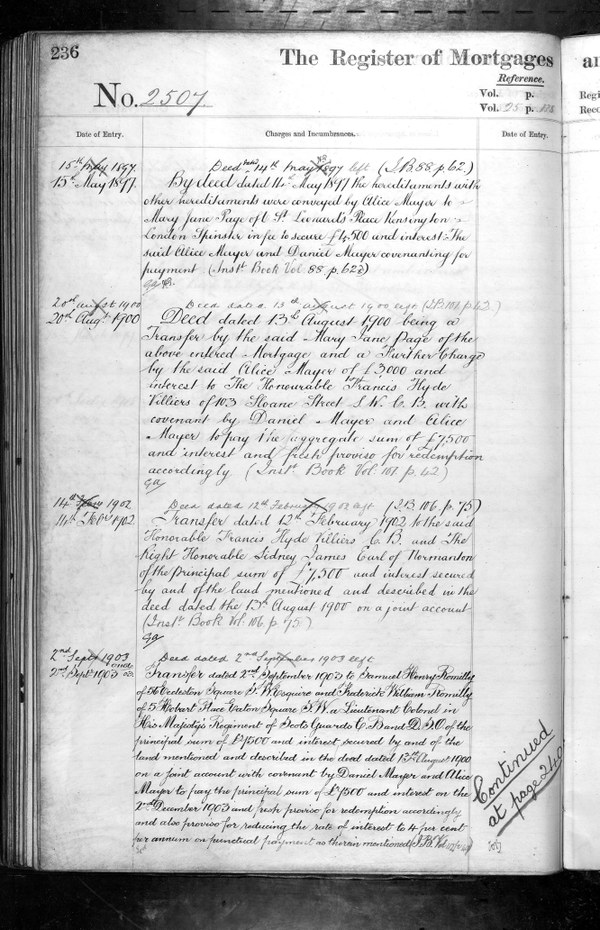 236
The Register of Mortgages
Reference.
No. 2507.
Vol. p.
Vol. 25 p.
Date of Entry.
Charges and Incumbrances.
Date of Entry.
15th May 1897.
Deed dated 14th May 1897 left (I.B. 88. p. 62.)
15th May 1897.
By deed dated 14th May 1897 the hereditaments with
other hereditaments were conveyed by Alice Mayer to
Mary Jane Page of 6 St. Leonard's Place Kensington
London Spinster in fee to secure £4,500 and interest. The
said Alice Mayer and Daniel Mayer covenanting for
payment. (Inst. Book Vol. 88. p. 62.)
20th August 1900
Deed dated 13th August 1900 left (I.B. 101. p. 62.)
20th Augt. 1900
Deed dated 13th August 1900 being a
Transfer by the said Mary Jane Page of the
above entered Mortgage and a Further Charge
by the said Alice Mayer of £3000 and
interest to The Honourable Francis Hyde
Villiers of 103 Sloane Street S.W. C.B. with
covenant by Daniel Mayer and Alice
Mayer to pay the aggregate sum of £7,500
and interest and fresh proviso for redemption
accordingly (Inst. Book Vol. 101. p. 62)
14th 1902
Deed dated 12th February 1902 left (I.B. 106. p. 75)
14th Feb. 1902
Transfer dated 12th February 1902 to the said
Honorable Francis Hyde Villiers C.B. and The
Right Honorable Sidney James Earl of Normanton
of the principal sum of £7,500 and interest secured
by and of the land mentioned and described in the
deed dated the 13th August 1900 on a joint account
(Inst. Book Vol. 106. p. 75)
2nd Sept 1903
Deed dated 2nd September 1903 left
2nd Sept. 1903
Transfer dated 2nd September 1903 to Samuel Henry Romilly
of 56 Eccleston Square S.W. Esquire and Frederick William Romilly
of 5 Hobart Place Eaton Square S.W. a Lieutenant Colonel in
His Majesty's Regiment of Scots Guards C.B. and D.S.O. of the
principal sum of £7500 and interest secured by and of the
land mentioned and described in the deed dated 13th August 1900
on a joint account with covenant by Daniel Mayer and Alice
Mayer to pay the principal sum of £7500 and interest on the
2nd December 1903 and fresh proviso for redemption accordingly
and also proviso for reducing the rate of interest to 4 per cent
per annum on punctual payment as therein mentioned (I.B. Vol.
Continued
at page 240